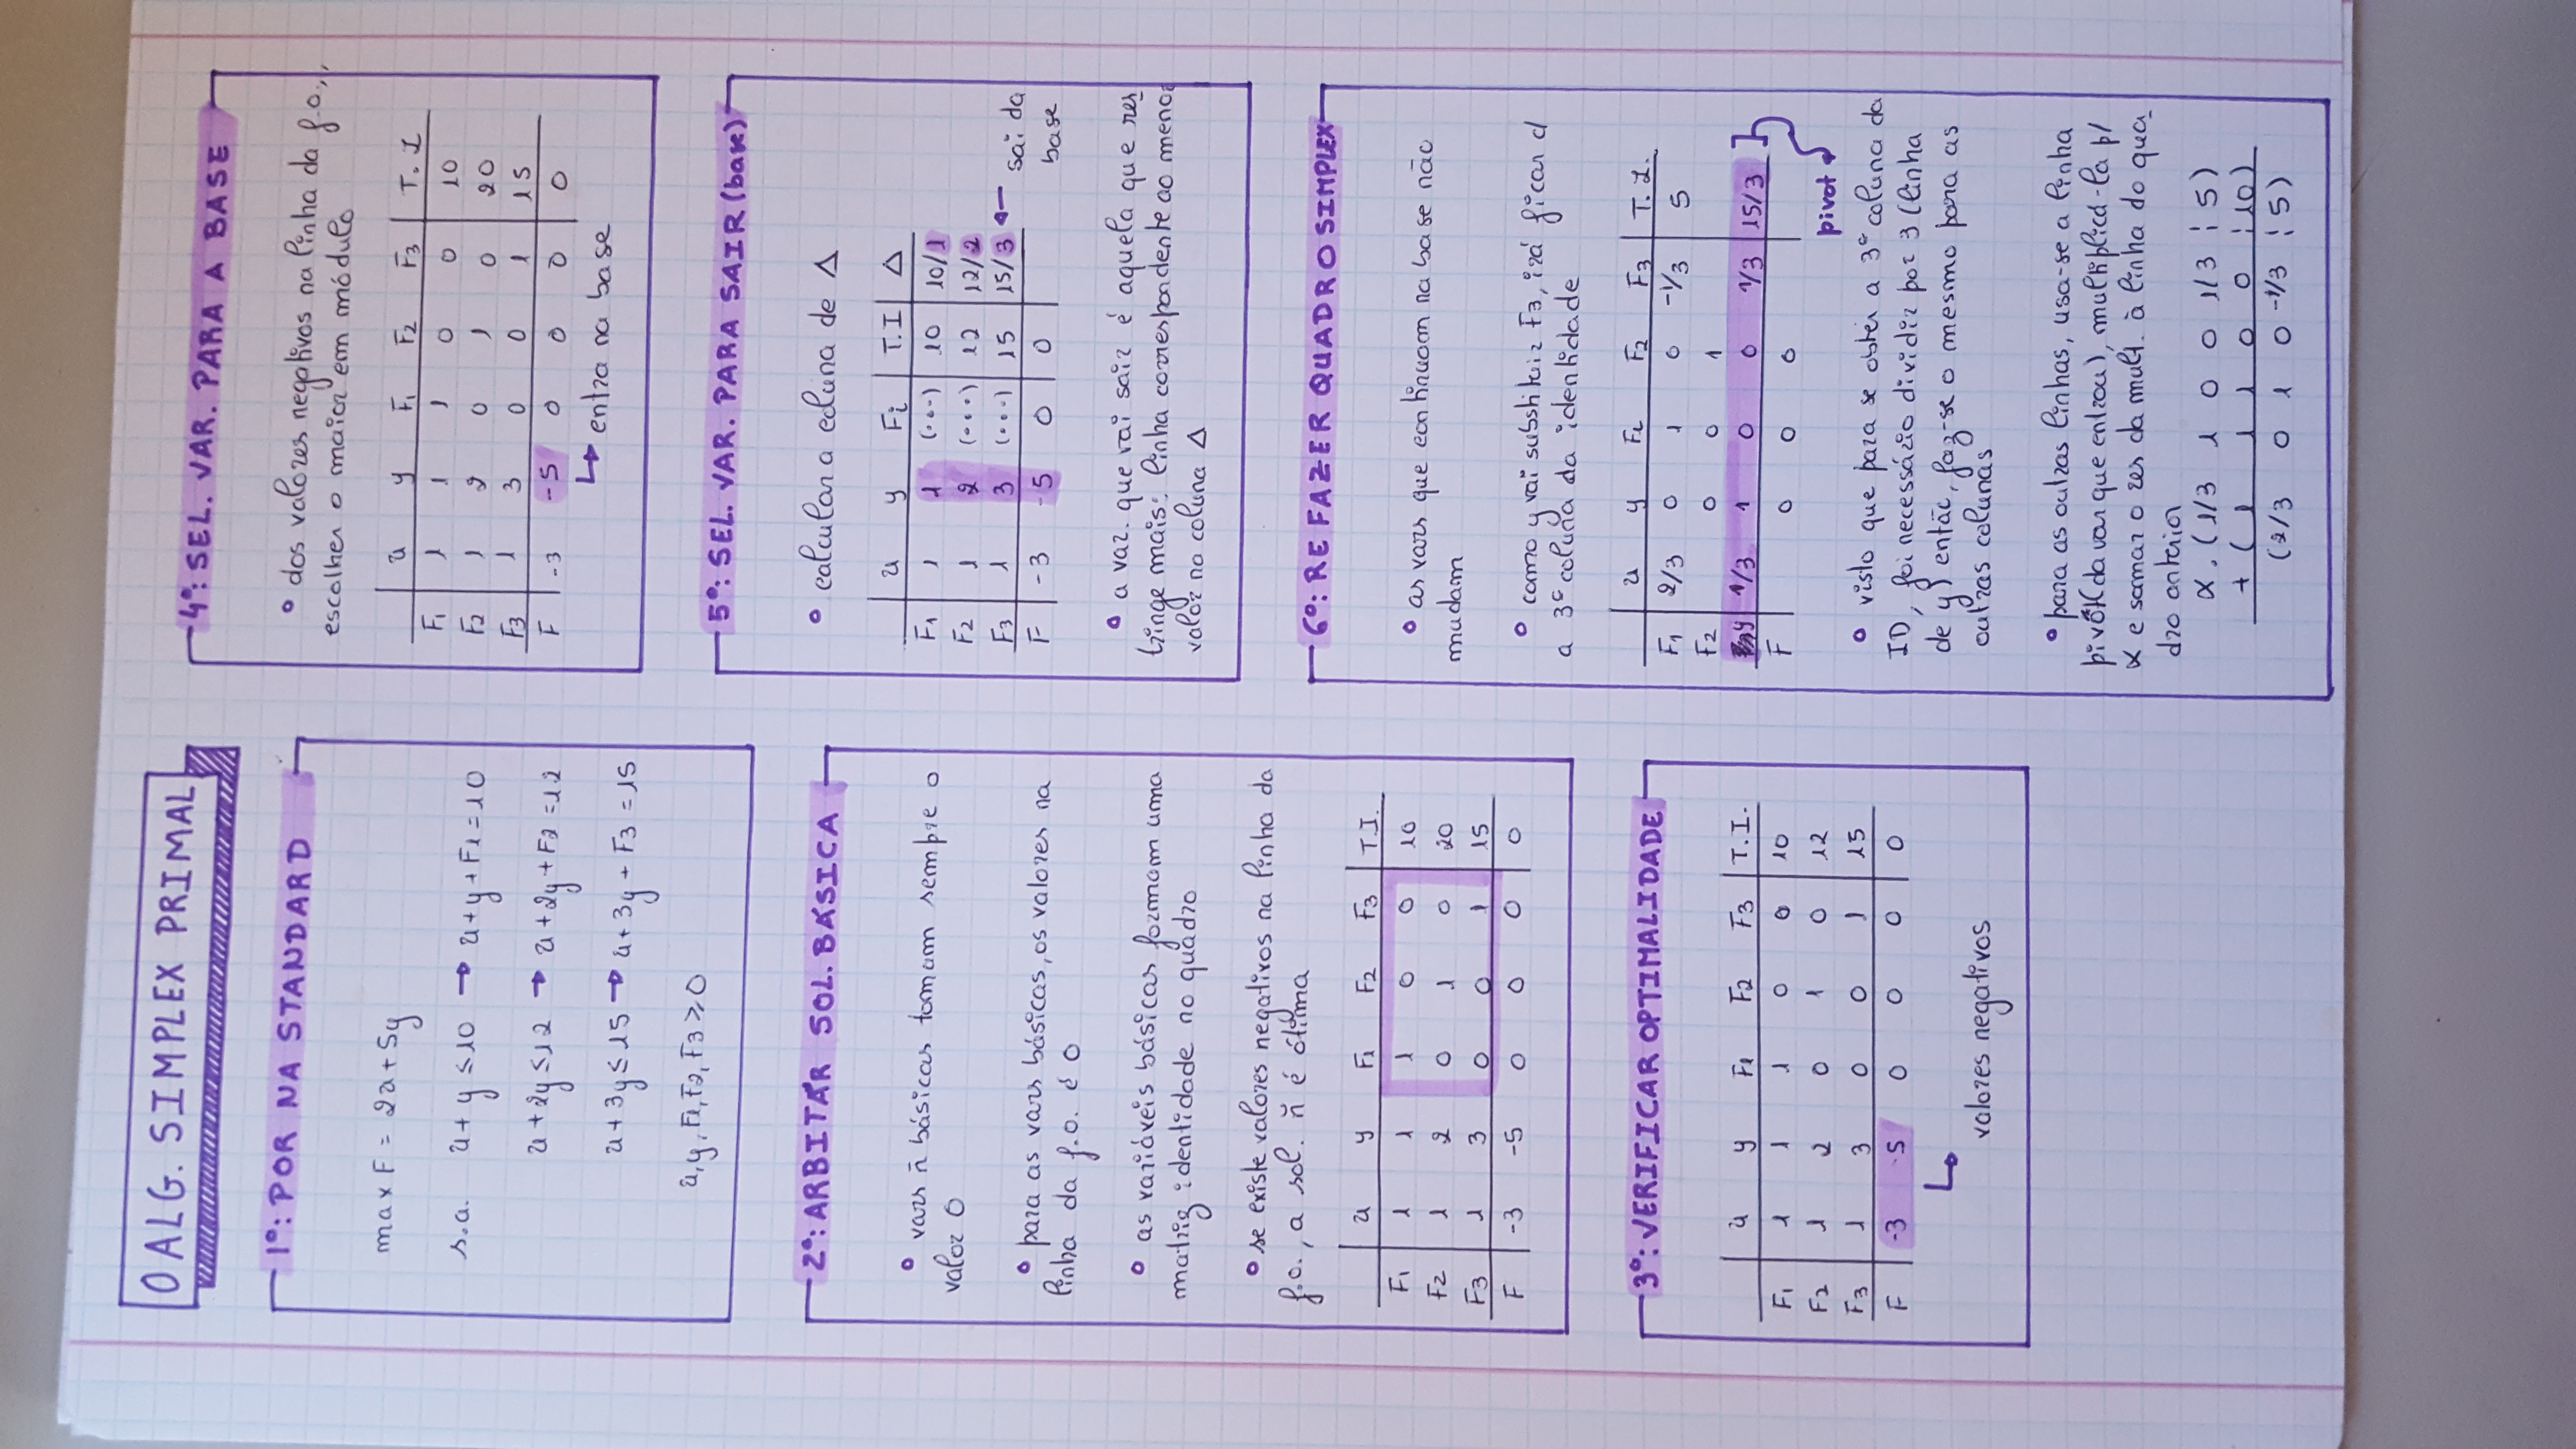 O ALG. SIMPLEX PRIMAL
1º: POR NA STANDARD
max F = 2x + 5y
s.a. x + y ≤ 10 → x + y + F1 = 10
x + 2y ≤ 12 → x + 2y + F2 = 12
x + 3y ≤ 15 → x + 3y + F3 = 15
x, y, F1, F2, F3 ≥ 0
2º: ARBITRAR SOL. BÁSICA
• vars ñ básicas tomam sempre o
valor 0
• para as vars básicas, os valores na
linha da f.o. é 0
• as variáveis básicas formam uma
matriz identidade no quadro
• se existe valores negativos na linha da
f.o., a sol. ñ é ótima
x y F1 F2 F3 T.I.
F1 1 1 1 0 0 10
F2 1 2 0 1 0 20
F3 1 3 0 0 1 15
F -3 -5 0 0 0 0
3º: VERIFICAR OPTIMALIDADE
x y F1 F2 F3 T.I.
F1 1 1 1 0 0 10
F2 1 2 0 1 0 12
F3 1 3 0 0 1 15
F -3 -5 0 0 0 0
↳ valores negativos
4º: SEL. VAR. PARA A BASE
• dos valores negativos na linha da f.o.,
escolher o maior em módulo
x y F1 F2 F3 T.I
F1 1 1 1 0 0 10
F2 1 2 0 1 0 20
F3 1 3 0 0 1 15
F -3 -5 0 0 0 0
↳ entra na base
5º: SEL. VAR. PARA SAIR (base)
• calcular a coluna de Δ
x y Fi T.I Δ
F1 1 1 (...) 10 10/1
F2 1 2 (...) 12 12/2
F3 1 3 (...) 15 15/3 ← sai da
base
F -3 -5 0 0
• a var. que vai sair é aquela que res
tringe mais: linha correspondente ao menor
valor na coluna Δ
6º: REFAZER QUADRO SIMPLEX
• as vars que continuam na base não
mudam
• como y vai substituir F3, irá ficar c/
a 3ª coluna da identidade
x y F1 F2 F3 T.I.
F1 2/3 0 1 0 -1/3 5
F2 0 0 1
y 1/3 1 0 0 1/3 15/3
F 0 0 0
pivot
• visto que para se obter a 3ª coluna da
ID, foi necessário dividir por 3 (linha
de y) então, faz-se o mesmo para as
outras colunas
• para as outras linhas, usa-se a linha
pivô (da var que entrou), multiplicá-la p/
α e somar o res da mult. à linha do qua
dro anterior
α . (1/3 1 0 0 1/3 ¦ 5)
+ (1 1 1 0 0 ¦ 10)
(2/3 0 1 0 -1/3 ¦ 5)